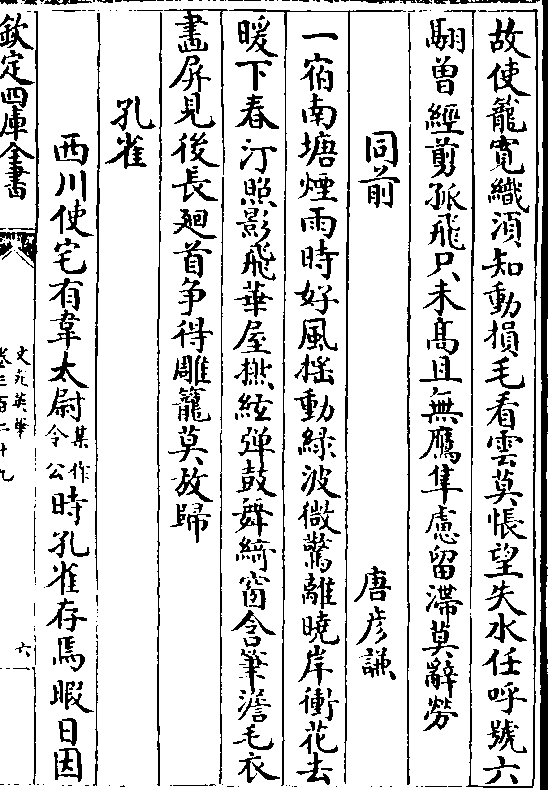 故使籠寛織須知動損毛看雲莫悵望失水任呼號六
翮曽經剪孤飛只未髙且無鷹隼慮留滯莫辭勞
同前
唐彦謙
一宿南塘煙雨時好風揺動緑波微驚離曉岸衝花去
暖下春汀照影飛華屋撚絃弹鼓舞綺窗含筆澹毛衣
畫屏見後長廻首争得雕籠莫放歸
孔雀
西川使宅有韋太尉某作令公時孔雀存焉暇日因
欽定四庫全書
文苑英華
卷三百二十九
六